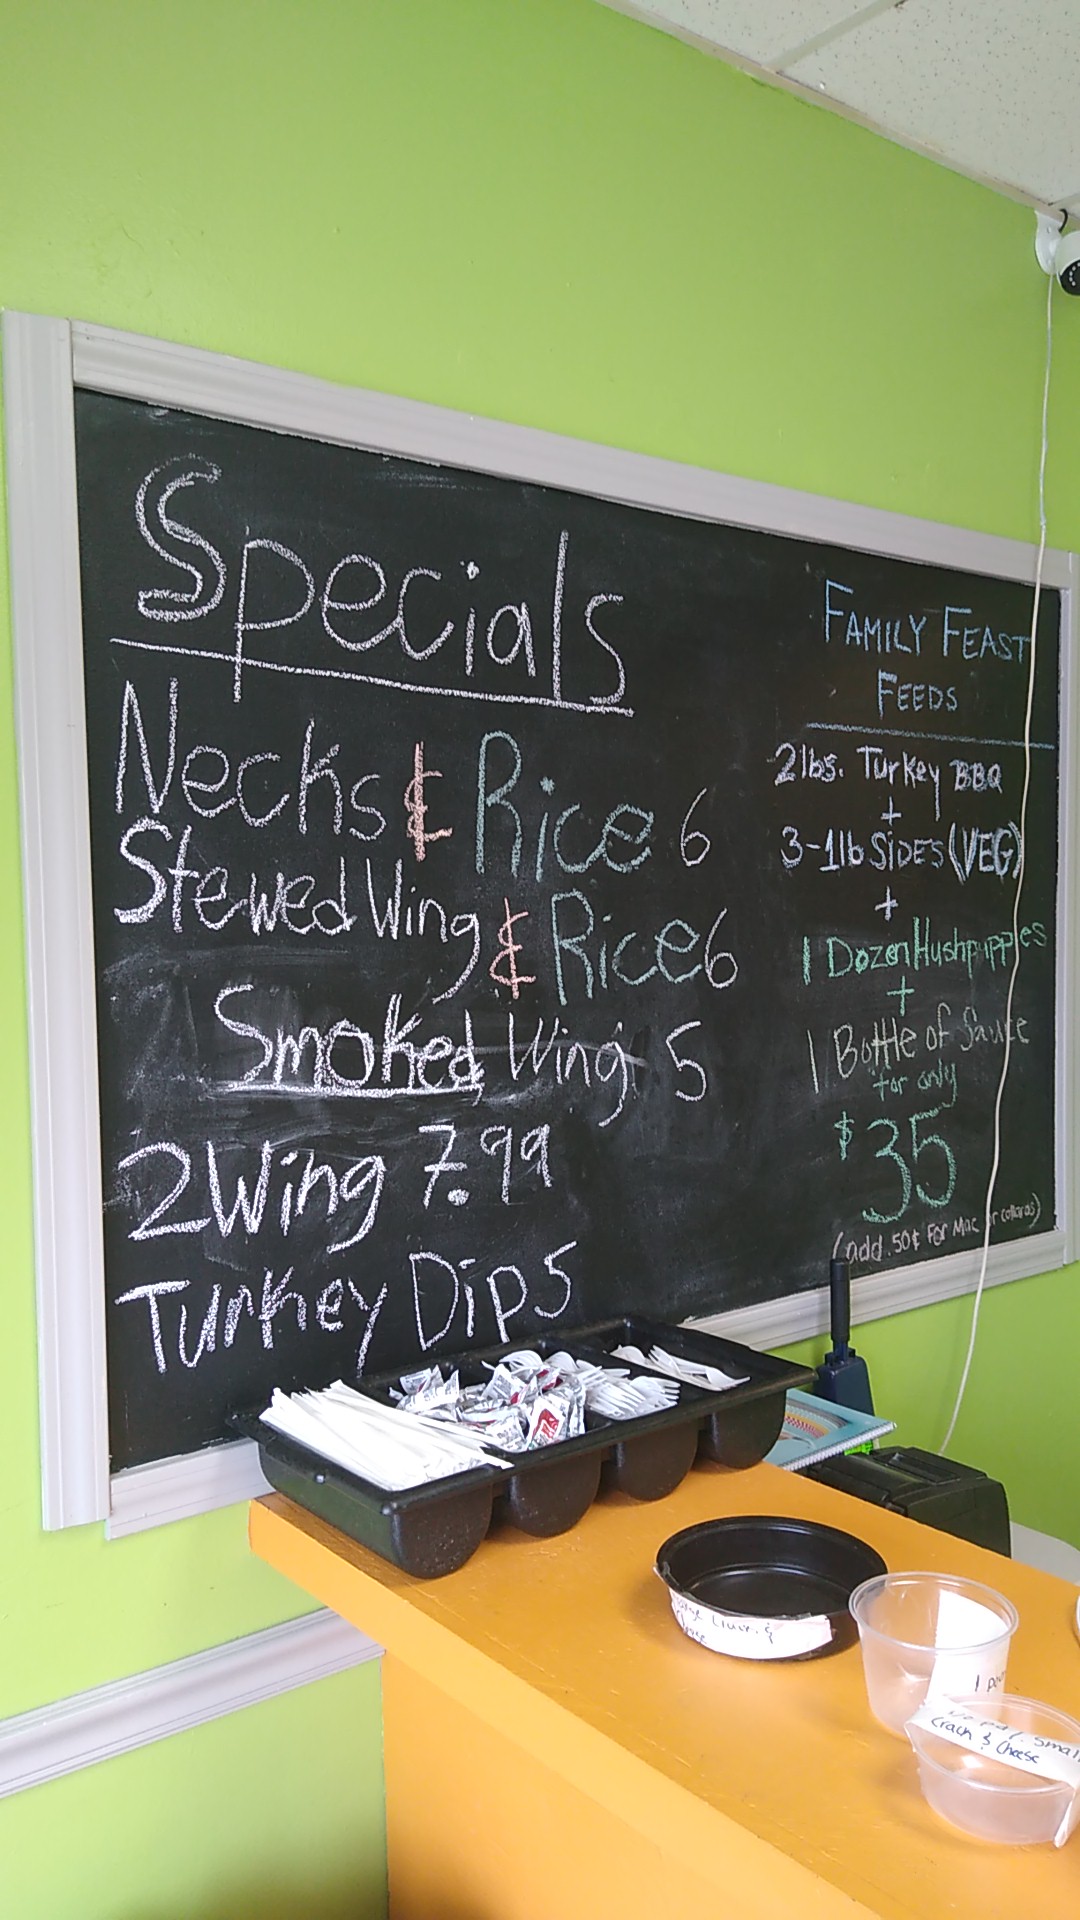 Specials
Necks & Rice 6
Stewed Wing & Rice 6
Smoked Wing 5
2 Wing 7.99
Turkey Dip 5
FAMILY FEAST
FEEDS
2lbs. Turkey BBQ
+
3-1lb SIDES (VEG)
+
1 Dozen Hushpuppies
+
1 Bottle of Sauce
for only
$35
(add .50¢ For Mac or collards)
Crach & Cheese